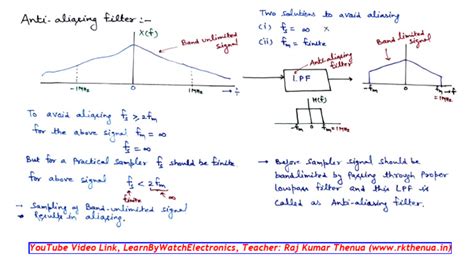 Anti-aliasing filter :-
X(f)
Band unlimited
signal
-1MHz
0
1MHz
f
To avoid aliasing fs ≥ 2fm
for the above signal fm = ∞
fs = ∞
But for a Practical sampler fs should be finite
for above signal fs < 2fm
finite
∞
→ Sampling of Band-unlimited signal
Results in aliasing.
Two solutions to avoid aliasing
(i) fs = ∞ ×
(ii) fm = finite
Anti-aliasing
filter
LPF
H(f)
-fm
0
fm=1MHz
Band limited
signal
-fm
0
fm
=1MHz
f
→ Before sampler signal should be
bandlimited by Passing through Proper
lowpass filter and this LPF is
called as Anti-aliasing filter.
YouTube Video Link, LearnByWatchElectronics, Teacher: Raj Kumar Thenua (www.rkthenua.in)